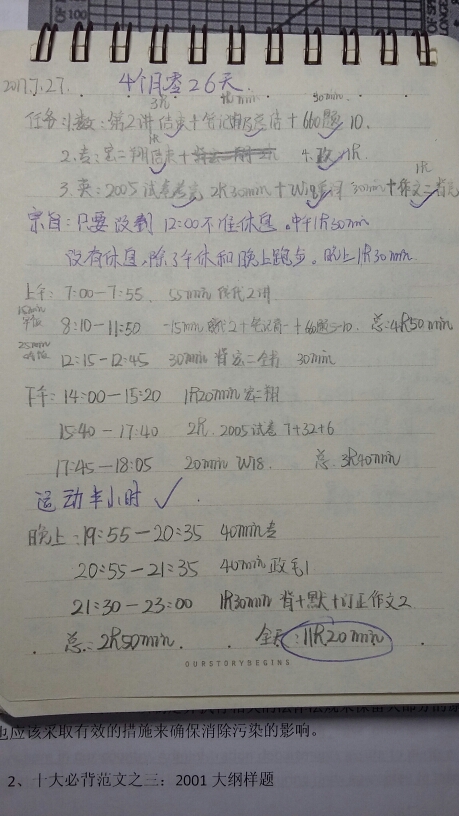 2017.7.27. 4个月零26天.
3R 40min 30min
任务:1.数:第2讲结束+笔记 +660题10.
1R
2.专:宏二翔结束+ 4.政:1R.
1R
3.英:2005试卷 2R30min+W18 30min+作文二背完
宗旨:只要没到12:00不准休息。中午1R30min
没有休息,除了午休和晚上跑步。晚上1R30min
上午: 7:00-7:55. 55min 线代2讲
15min 早饭
8:10-11:50 -15min 线代2+笔记 +660题-10. 总:4R50min
25min
12:15-12:45 30min 背宏二 30min
下午: 14:00-15:20 1R20min 宏二翔
15:40-17:40 2R. 2005试卷 7+32+6
17:45-18:05 20min W18. 总. 3R40min
运动半小时 ✓.
晚上:19:55-20:35 40min专
20:55-21:35 40min政毛1
21:30-23:00 1R30min 背+默+订正作文2
总:2R50min. 全天:11R20min
OURSTORYBEGINS
也应该采取有效的措施来确保消除污染的影响。
2、十大必背范文之三:2001大纲样题